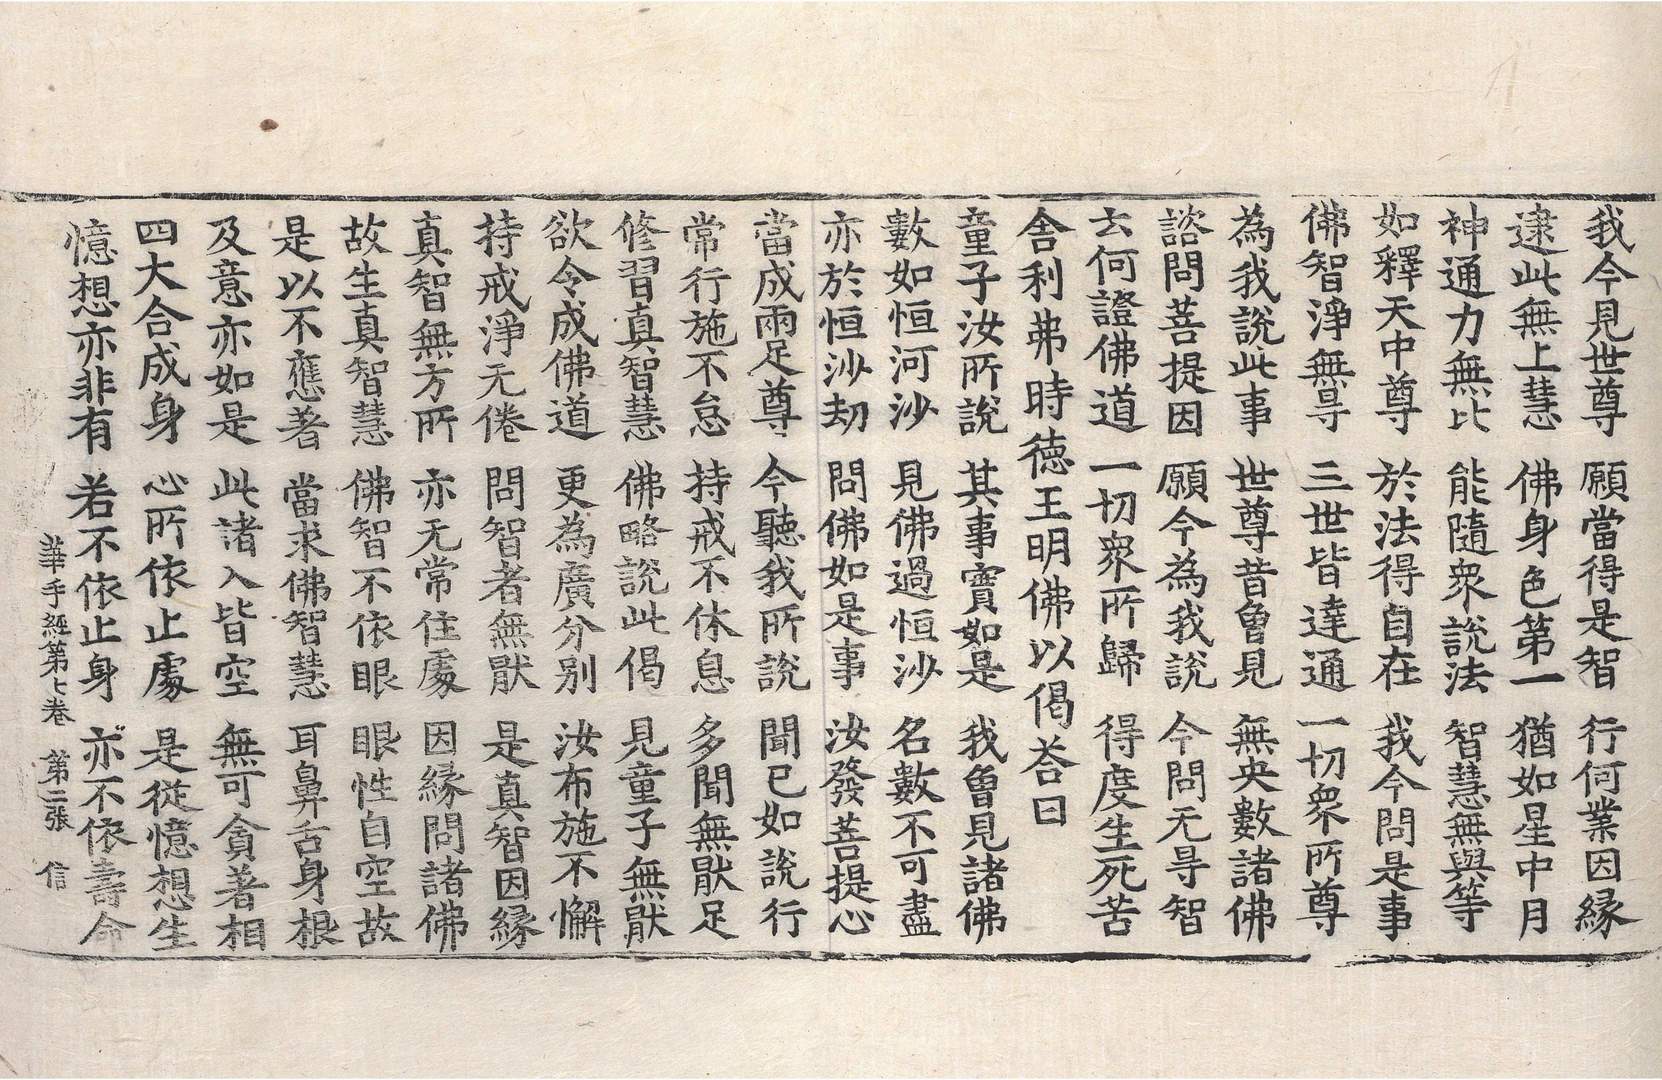 我今見世尊 願當得是智 行何業因緣
逮此無上慧 佛身色第一 猶如星中月
神通力無比 能隨衆說法 智慧無與等
如釋天中尊 於法得自在 我今問是事
佛智淨無㝵 三世皆達通 一切衆所尊
為我說此事 世尊昔曾見 無央數諸佛
諮問菩提因 願今為我說 今問无㝵智
云何證佛道 一切衆所歸 得度生死苦
舍利弗時德王明佛以偈荅曰
童子汝所說 其事實如是 我曾見諸佛
數如恒河沙 見佛過恒沙 名數不可盡
亦於恒沙劫 問佛如是事 汝發菩提心
當成兩足尊 今聽我所說 聞已如說行
常行施不怠 持戒不休息 多聞無猒足
修習真智慧 佛略說此偈 見童子無猒
欲令成佛道 更為廣分別 汝布施不懈
持戒淨无倦 問智者無猒 是真智因緣
真智無方所 亦无常住處 因緣問諸佛
故生真智慧 佛智不依眼 眼性自空故
是以不應著 當求佛智慧 耳鼻舌身根
及意亦如是 此諸入皆空 無可貪著相
四大合成身 心所依止處 是從憶想生
憶想亦非有 若不依止身 亦不依壽命
華手經第七卷 第二張 信